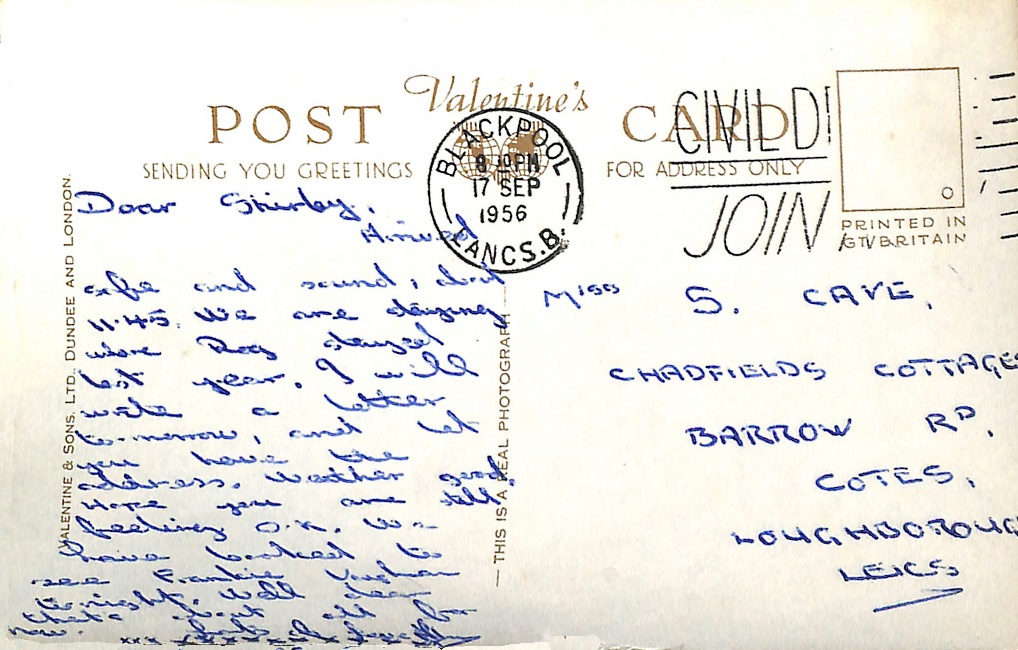 Valentine's
POST CARD
SENDING YOU GREETINGS
FOR ADDRESS ONLY
BLACKPOOL
PM
17 SEP
1956
LANCS.B.
CIVIL D
JOIN
PRINTED IN
GT. BRITAIN
VALENTINE & SONS, LTD. DUNDEE AND LONDON.
— THIS IS A REAL PHOTOGRAPH —
Dear Shirley,
Arrived
safe and sound,
11.45. We are staying
where stayed
last year. I will
write a letter
to-morrow, and let
you have the
address. Weather good.
Hope you are still
feeling O.K. We
have booked to
see Frankie Vaughan
to-night. Well dear
that's about all for
now.
Miss S. CAVE,
CHADFIELDS COTTAGES
BARROW RD,
COTES,
LOUGHBOROUG
LEICS